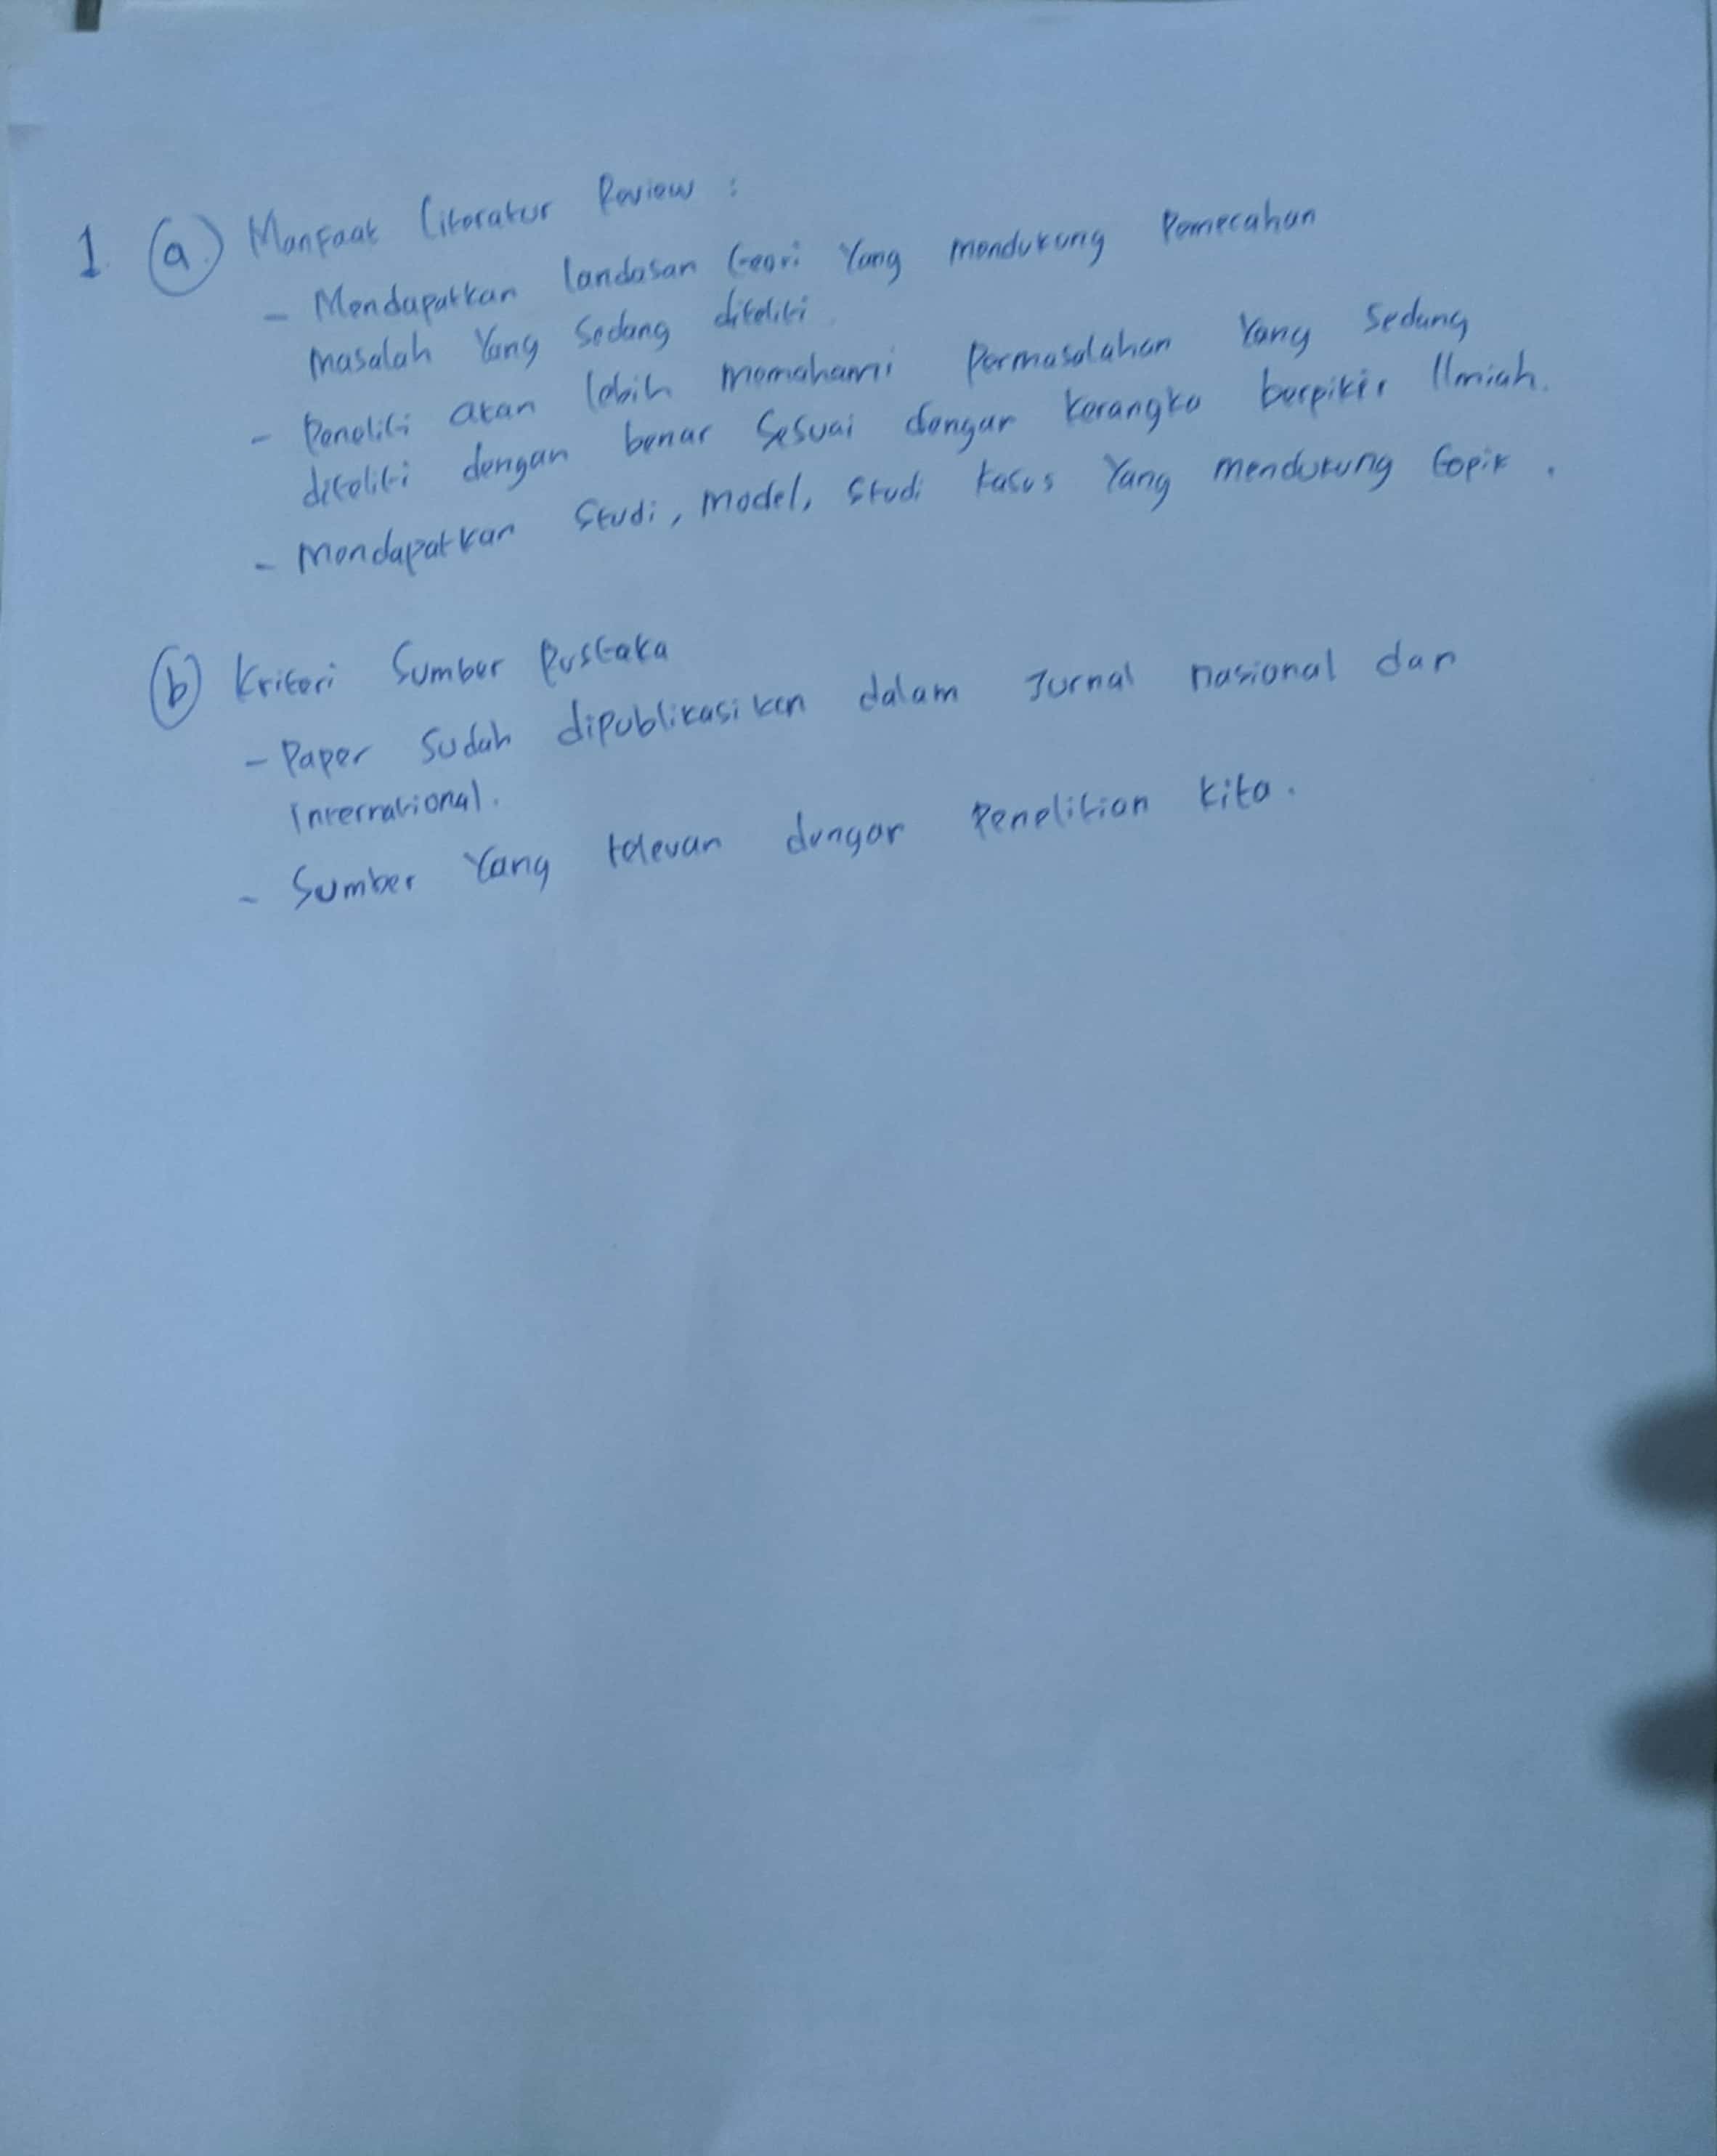 1. (a.) Manfaat Literatur Review :
- Mendapatkan landasan teori Yang mendukung Pemecahan
masalah Yang Sedang diteliti.
- Peneliti akan lebih memahami Permasalahan Yang Sedang
diteliti dengan benar Sesuai dengan kerangka berpikir Ilmiah.
- Mendapatkan Studi, model, Studi kasus Yang mendukung topik.
(b) Kriteri Sumber Pustaka
- Paper Sudah dipublikasikan dalam Jurnal nasional dan
Internasional.
- Sumber Yang relevan dengan Penelitian kita.